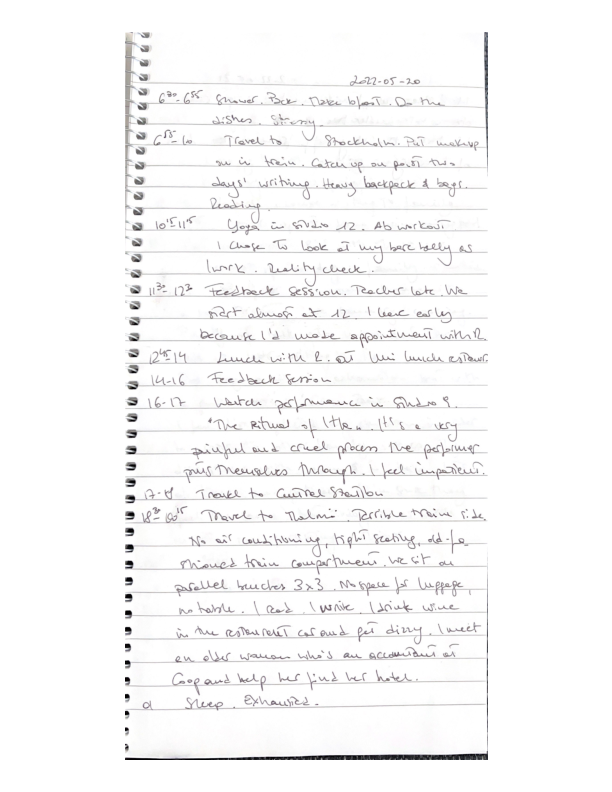 2022-05-20
6³⁰-6⁵⁵ Shower. Pack. Make bfast. Do the
dishes. Stressy.
6⁵⁵-10 Travel to Stockholm. Put makeup
on in train. Catch up on past two
days' writing. Heavy backpack & bags.
Reading.
10¹⁵-11¹⁵ Yoga in studio 12. Ab workout
I chose to look at my bare belly as
I work. Reality check.
11³⁰-12³⁰ Feedback session. Teacher late. We
start almost at 12. I leave early
because I'd made appointment with R
12⁴⁵-14 Lunch with R. at Uni lunch restaur.
14-16 Feedback session
16-17 Watch performance in studio 9.
"The Ritual of It's a very
painful and cruel process the performer
puts themselves through. I feel impatient.
17- Travel to Central Station
18³⁰- Travel to Malmö. Terrible train ride.
No air conditioning, tight seating, old-fa
shioned train compartment. We sit on
parallel benches 3x3. No space for luggage,
no table. I read. I write. I drink wine
in the restaurant car and get dizzy. I meet
an older woman who's an accountant at
Coop and help her find her hotel.
01 Sleep. Exhausted.